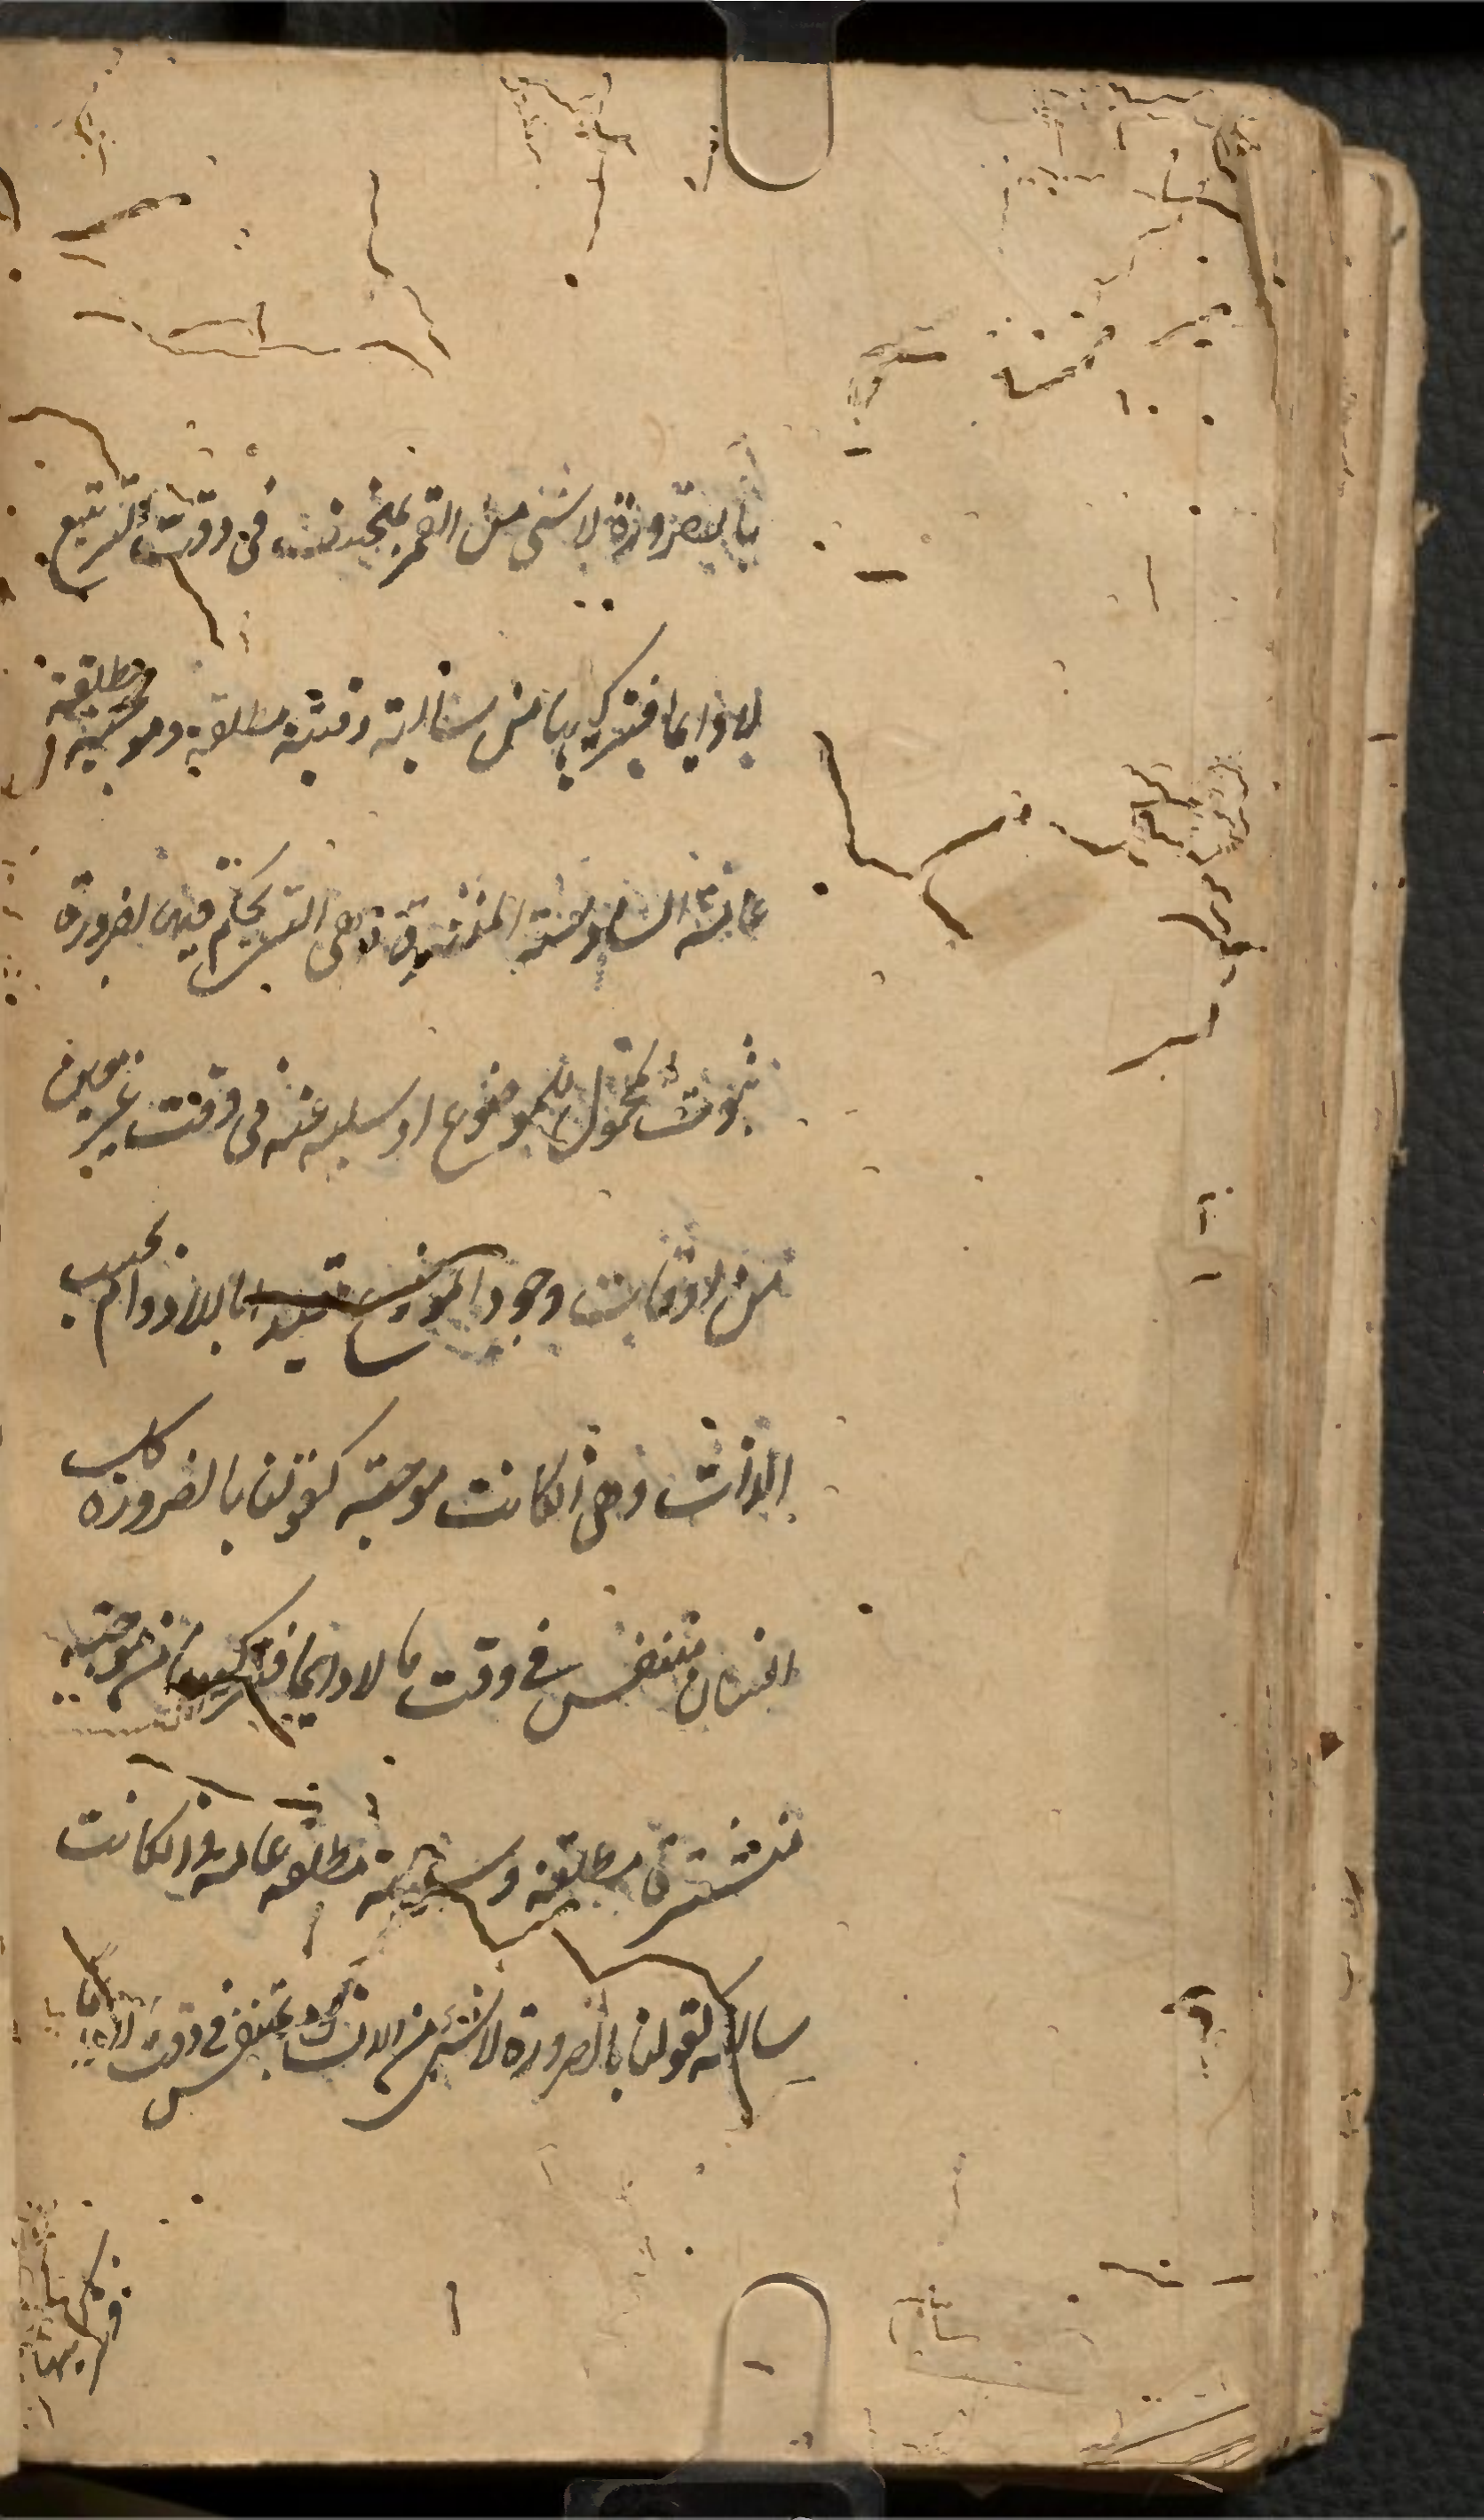 بالضرورة لا شئ من القمر بمنخسف فی وقت التربیع
لا دایما فترکیبها من سالبة وقتیة مطلقة وموجبة مطلقة
عامة السادسة المنتشرة وهی التی یحکم فیها بضرورة
ثبوت المحمول للموضوع او سلبه عنه فی وقت غیر معین
من اوقات وجود الموضوع مقیدا باللادوام بحسب
الذات وهی ان کانت موجبة کقولنا بالضرورة کل
انسان متنفس فی وقت ما لا دایما فترکیبها من موجبة
منتشرة مطلقة وسالبة مطلقة عامة وان کانت
سالبة کقولنا بالضرورة لا شئ من الانسان بمتنفس فی وقت ما
فترکیبها